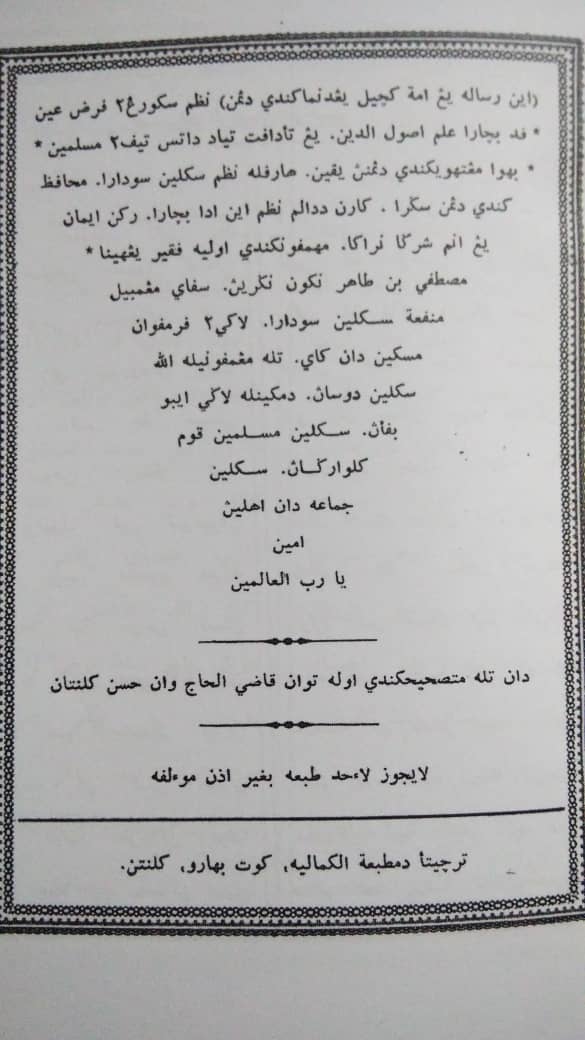 (اين رساله يڠ امة كچيل يڤدنماكندي دڠن) نظم سكورڠ٢ فرض عين
* ڤد بچارا علم اصول الدين. يڠ تأدافت تياد داتس تيف٢ مسلمين *
* بهوا مڠتهويكندي دڠنڽ يقين. هارڤله نظم سكلين سودارا. محافظ
كندي دڠن سݢرا. كارن ددالم نظم اين ادا بچارا. ركن ايمان
يڠ انم شرݢا نراكا. مهمڤونكندي اوليه فقير يڠهينا *
مصطفي بن طاهر نكون نݢريڽ. سفاي مڠمبيل
منفعة سكلين سودارا. لاكي٢ فرمفوان
مسكين دان كاي. تله مڠمڤونيله الله
سكلين دوساڽ. دمكينله لاݢي ايبو
بڤاڽ. سكلين مسلمين قوم
كلوارݢاڽ. سكلين
جماعه دان اهليڽ
امين
يا رب العالمين
دان تله متصحيحكندي اوله توان قاضي الحاج وان حسن كلنتان
لايجوز لاءحد طبعه بغير اذن موءلفه
ترچيتأ دمطبعة الكماليه, كوت بهارو, كلنتن.